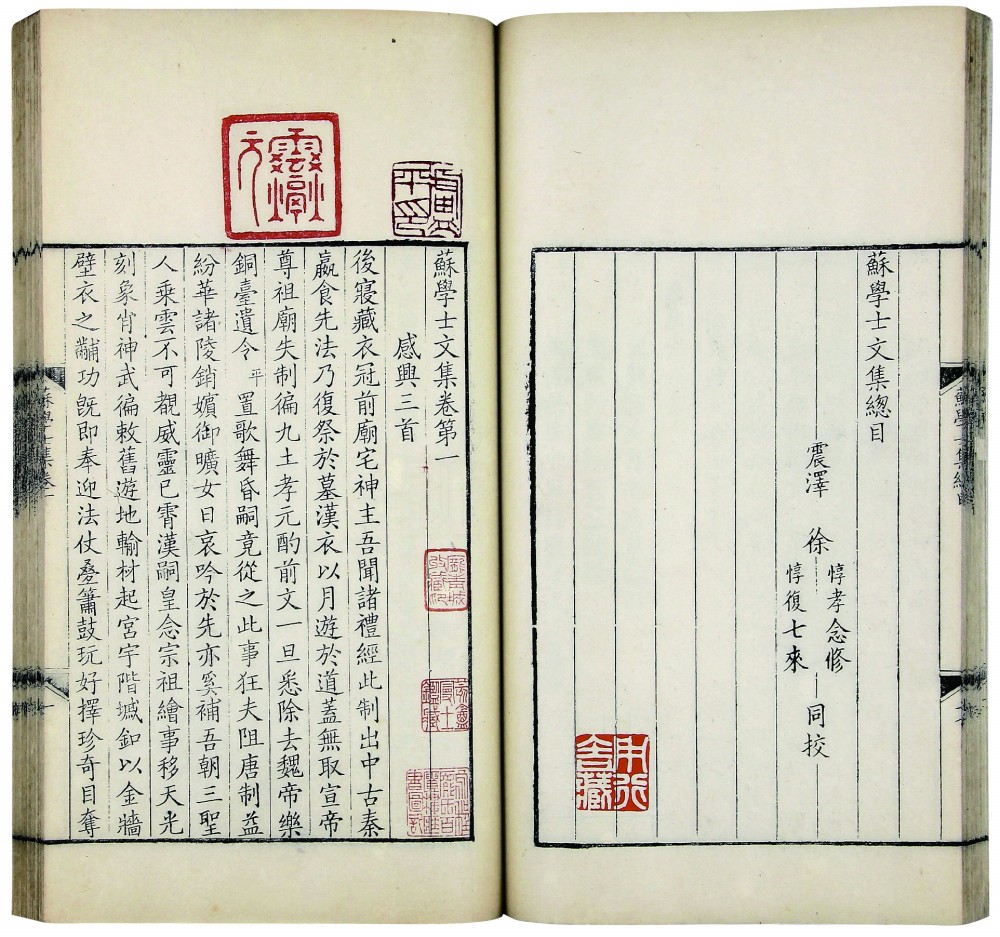 蘇學士文集總目
震澤 徐 惇孝念修 惇復七來 同校
蘇學士文集卷第一
感興三首
後寢藏衣冠前廟宅神主吾聞諸禮經此制出中古秦
嬴食先法乃復祭於墓漢衣以月遊於道蓋無取宣帝
尊祖廟失制徧九土孝元酌前文一旦悉除去魏帝樂
銅臺遺令平置歌舞昏嗣竟從之此事狂夫阻唐制益
紛華諸陵銷嬪御曠女日哀吟於先亦奚補吾朝三聖
人乘雲不可覩威靈已霄漢嗣皇念宗祖繪事移天光
刻象肖神武徧敕舊遊地輸材起宮宇階墄釦以金牆
壁衣之黼功旣即奉迎法仗疊簫鼓玩好擇珍奇目奪